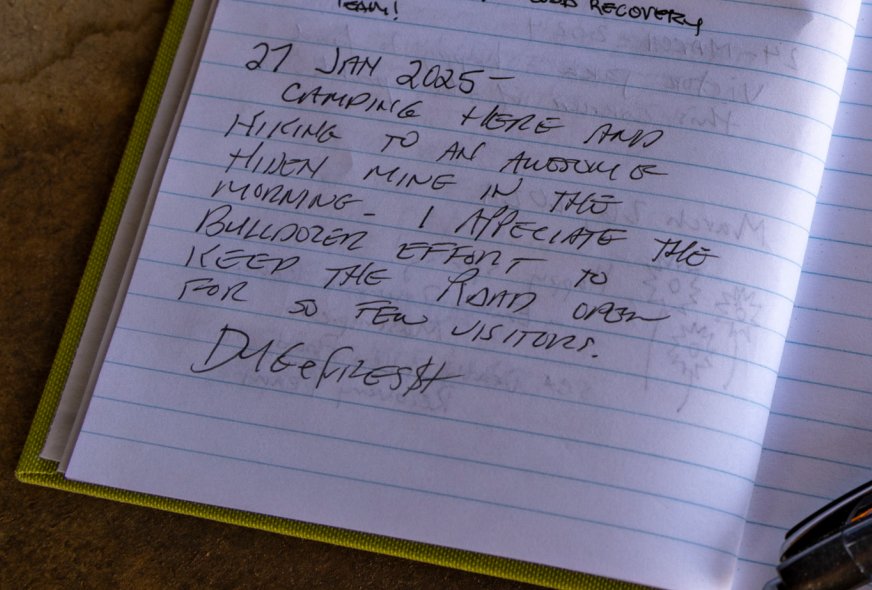 RECOVERY
TEAM!
27 JAN 2025-
CAMPING HERE AND
HIKING TO AN AWESOME
HIDEN MINE IN THE
MORNING. I APPECIATE THE
BULLDOZER EFFORT TO
KEEP THE ROAD OPEN
FOR SO FEW VISITORS.